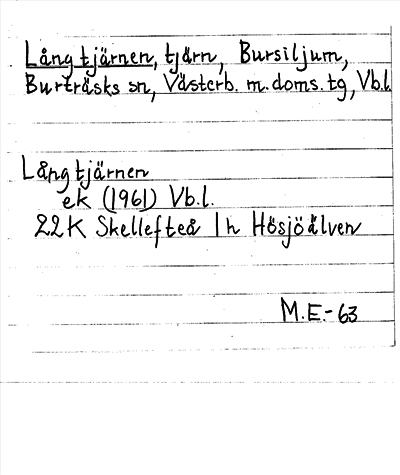 Långtjärnen, tjärn, Bursiljum,
Burträsks sn, Västerb. m. doms. tg, Vb.l.
Långtjärnen
ek (1961) Vb.l.
22K Skellefteå 1h Hösjöälven
M.E.-63